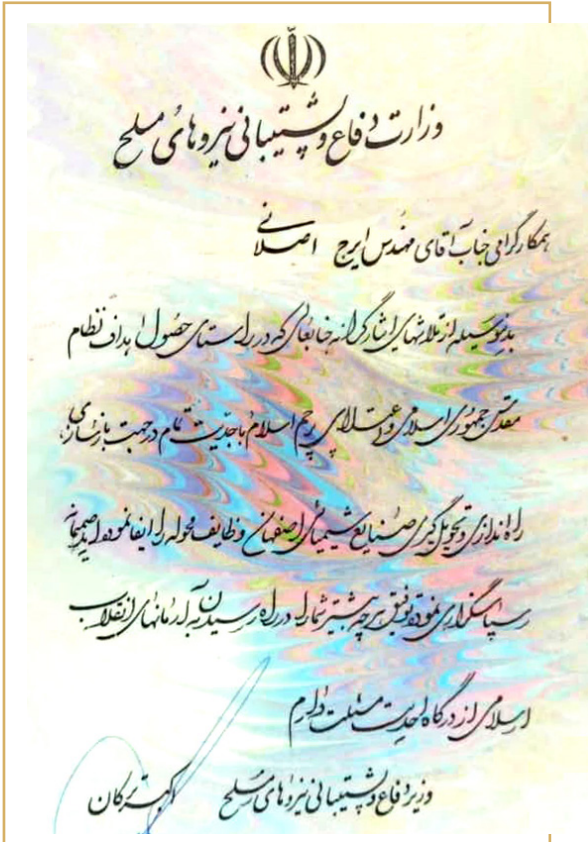 وزارت دفاع و پشتیبانی نیروهای مسلح
همکار گرامی جناب آقای مهندس ایرج اصلانی
بدینوسیله از تلاشهای ایثارگرانه جنابعالی که در راستای حصول اهداف نظام
مقدس جمهوری اسلامی و اعتلای پرچم اسلام با جدیت تام در جهت بازسازی،
راه اندازی و تحویل گیری صنایع شیمیائی اصفهان وظایف محوله را ایفا نموده اید صمیمانه
سپاسگزاری نموده توفیق هر چه بیشتر شما را در راه رسیدن به آرمانهای انقلاب
اسلامی از درگاه احدیت مسئلت دارم
وزیر دفاع و پشتیبانی نیروهای مسلح اکبر ترکان